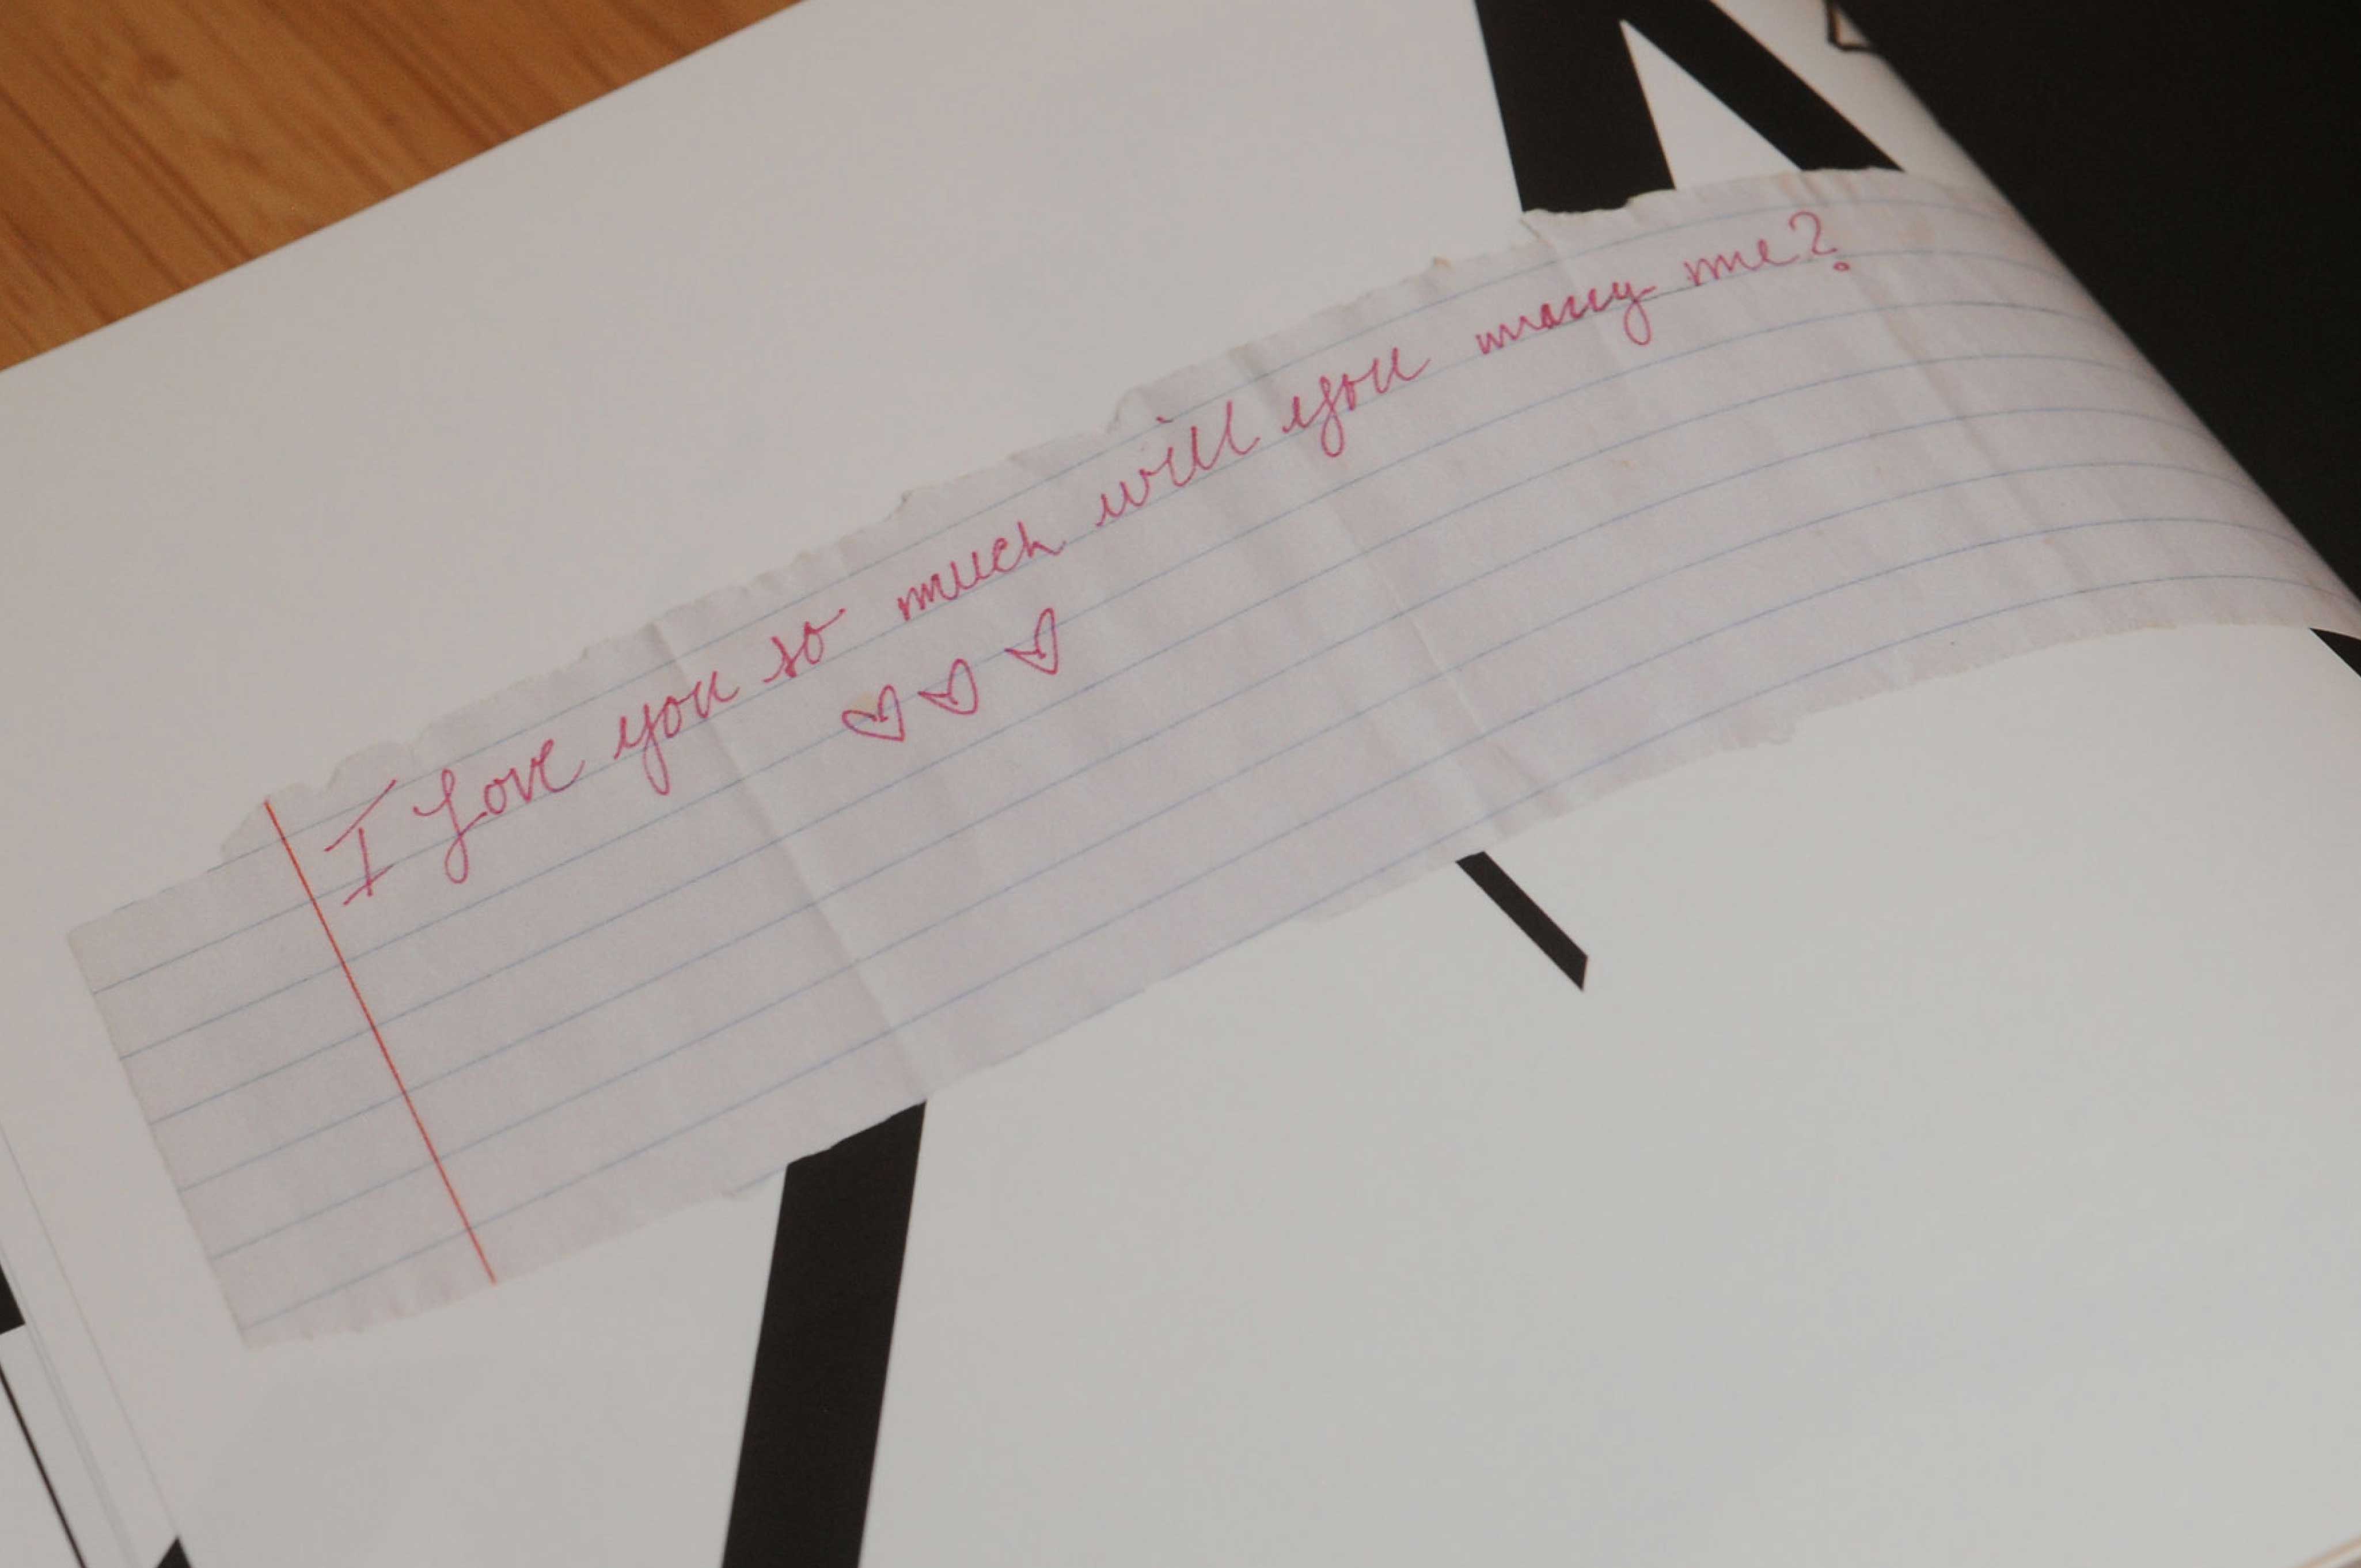 I Love you so much will you marry me?